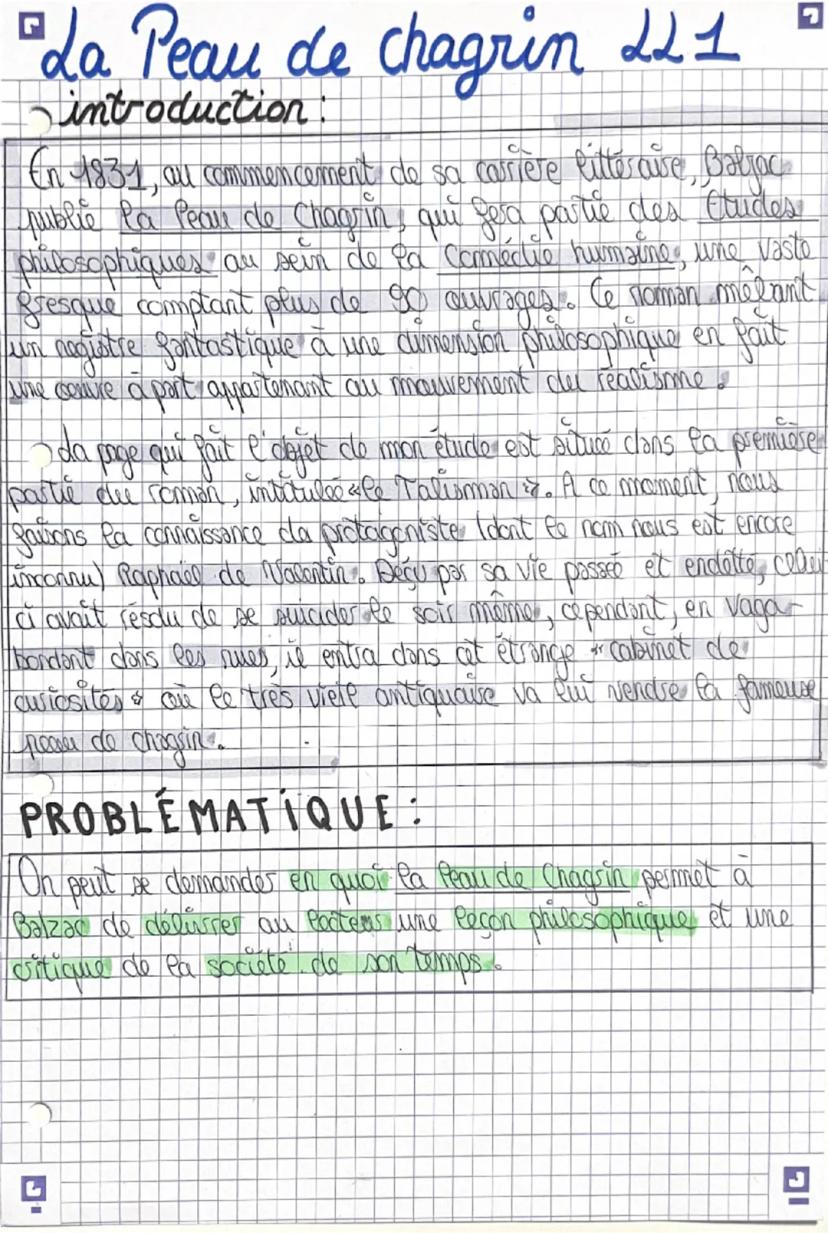 La Peau de chagrin LL1
introduction :
En 1831, au commencement de sa carrière littéraire, Balzac
publie la Peau de Chagrin, qui fera partie des Etudes
philosophiques au sein de la Comédie humaine, une vaste
fresque comptant plus de 90 ouvrages. Ce roman mêlant
un registre fantastique à une dimension philosophique en fait
une oeuvre à part appartenant au mouvement du réalisme.
La page qui fait l'objet de mon étude est située dans la première
partie du roman, intitulée « le Talisman ». A ce moment, nous
faisons la connaissance da protagoniste (dont le nom nous est encore
inconnu) Raphaël de Valentin. Déçu par sa vie passée et endetté, celui
ci avait résolu de se suicider le soir même, cependant, en vaga-
bondant dans les rues, il entra dans cet étrange « cabinet de
curiosités » où le très vieil antiquaire va lui vendre la fameuse
peau de chagin.
PROBLÉMATIQUE :
On peut se demander en quoi la Peau de Chagrin permet à
Balzac de délivrer au lecteurs une leçon philosophique et une
critique de la société de son temps.